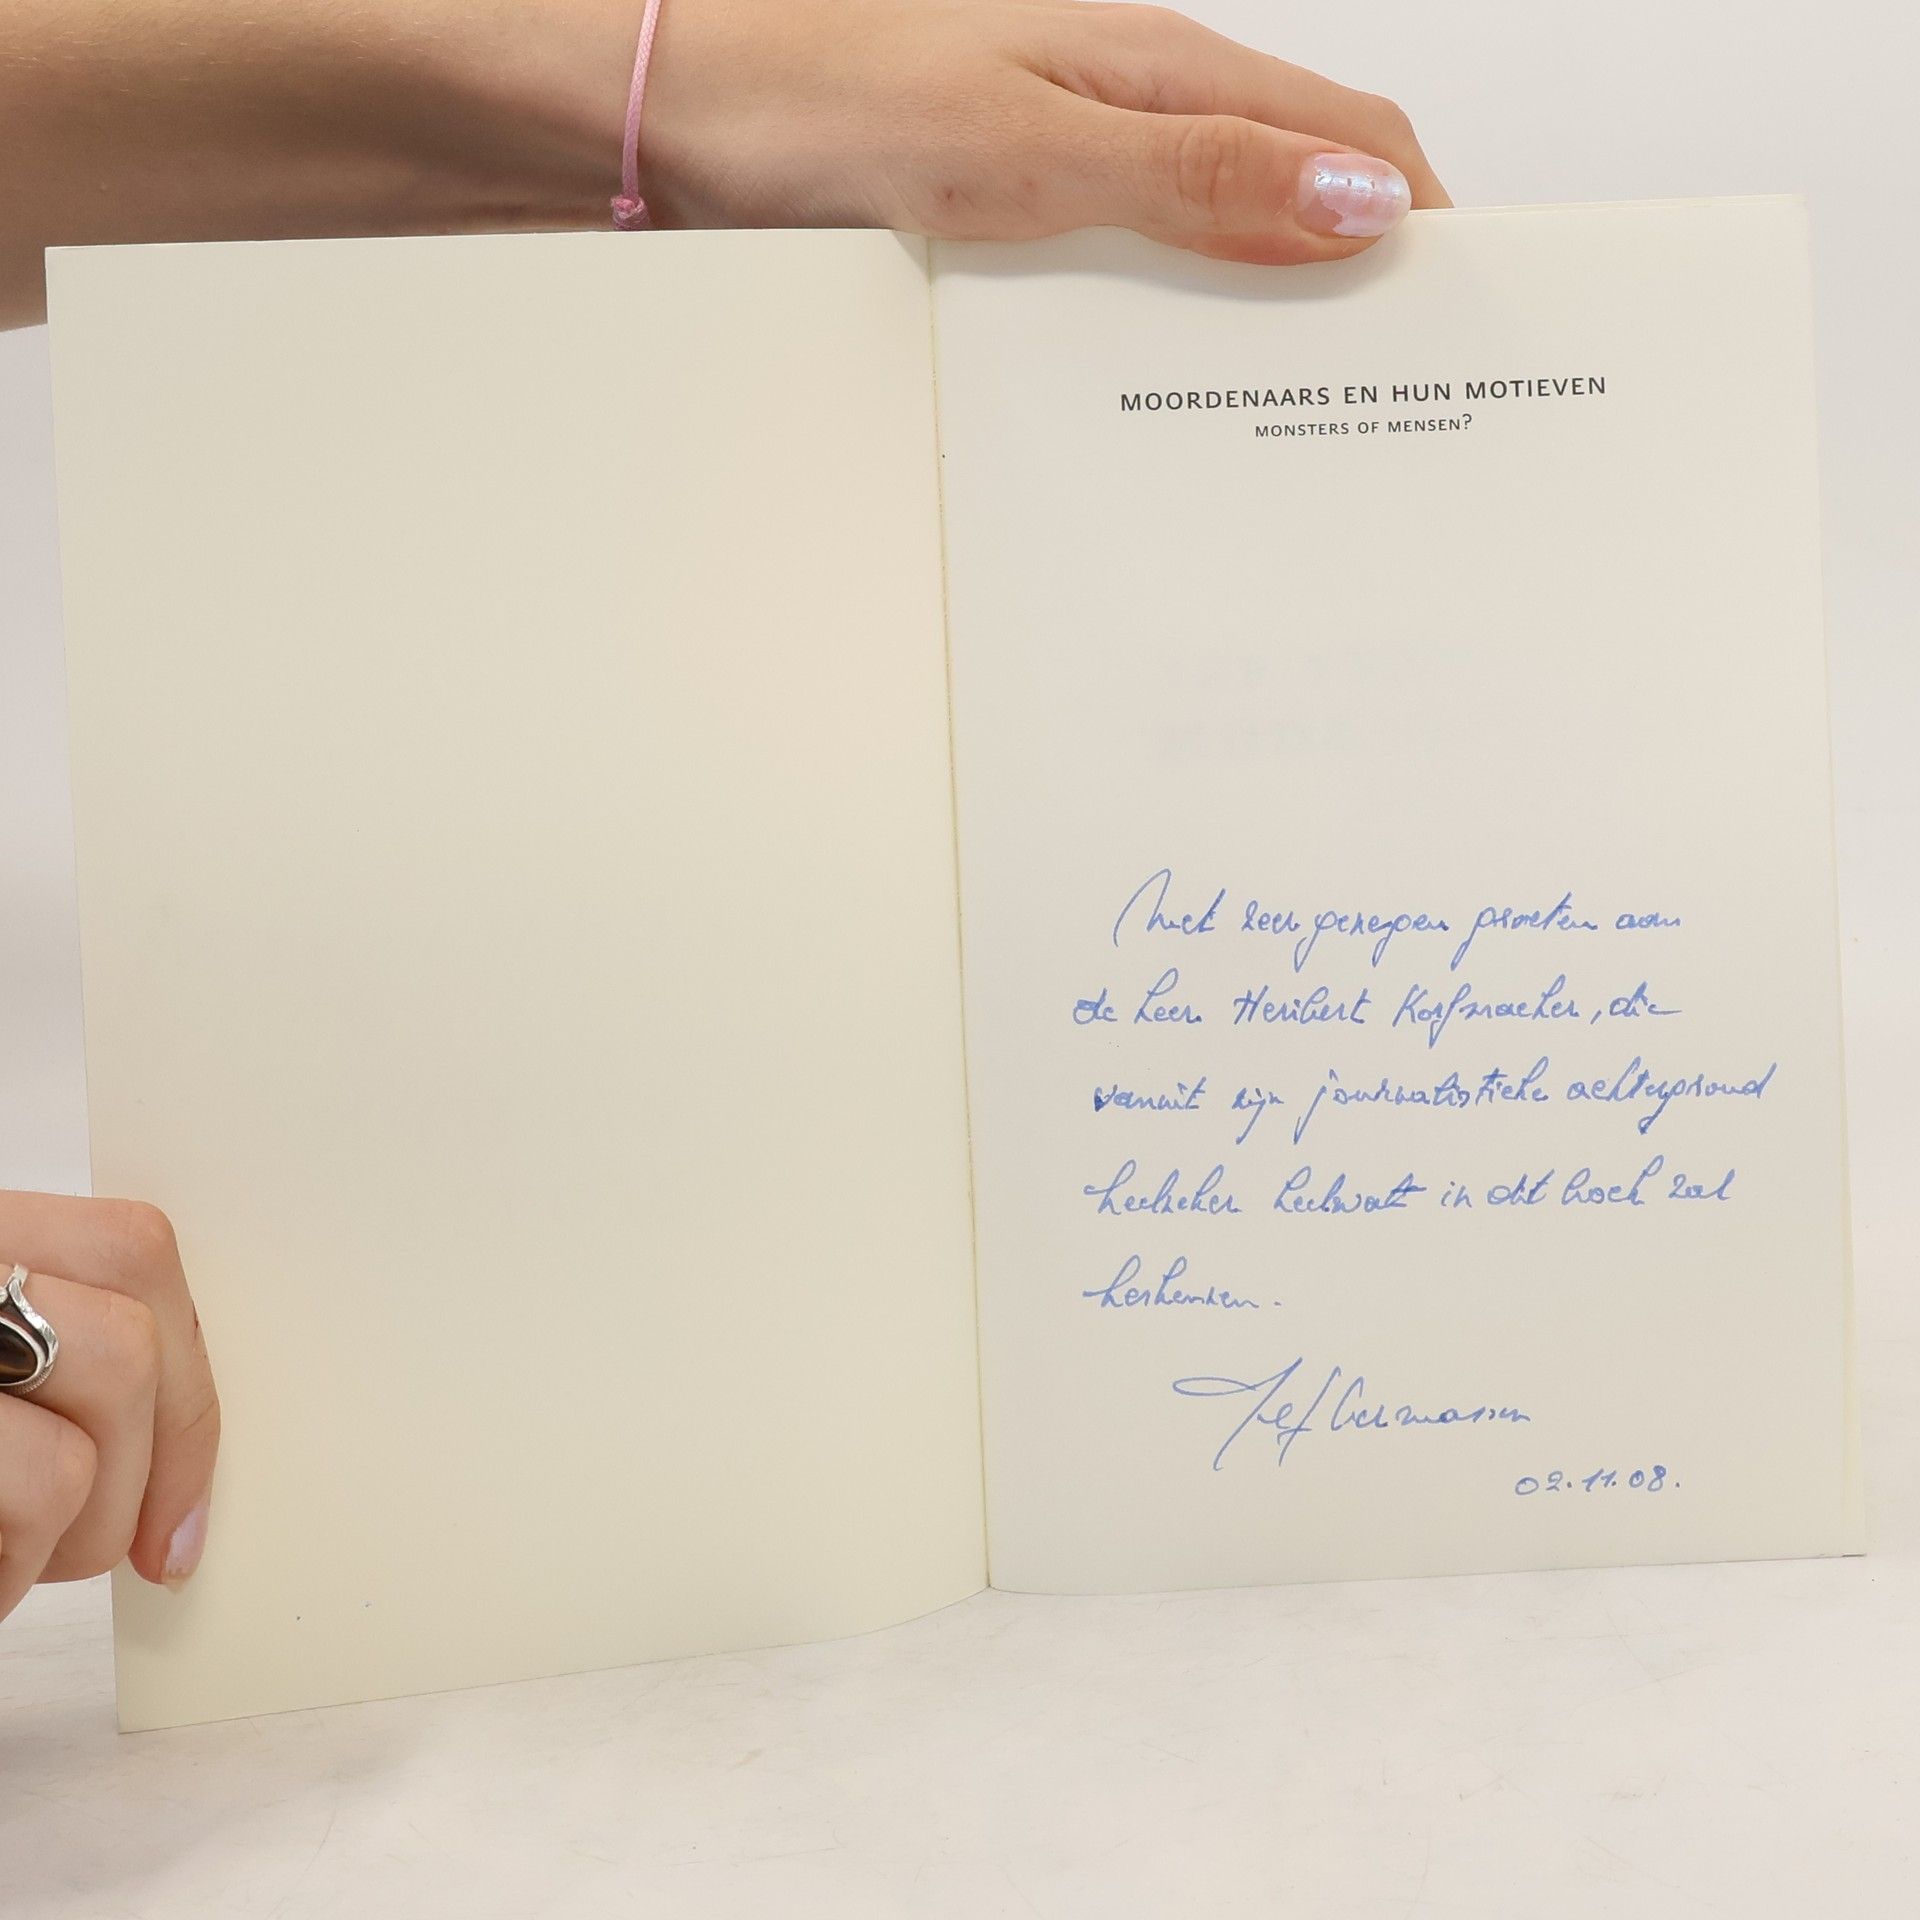 MOORDENAARS EN HUN MOTIEVEN
MONSTERS OF MENSEN?
Met zeer genegen groeten aan
de heer Heribert Korfmacher, die
vanuit zijn journalistieke achtergrond
heelzeker heelwat in dit boek zal
herkennen.
Jef Vermassen
02.11.08.